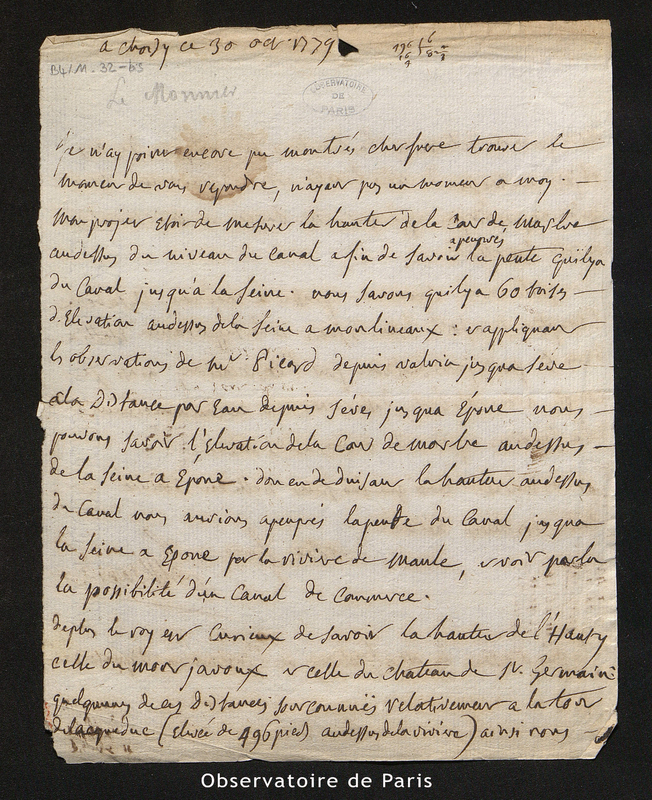 a choisy ce 30 oct. 1779
B4/M-32-b3
Le Monnier
OBSERVATOIRE
DE
PARIS
je n'ay point encore pu mon très cher frere trouver le
moment de vous repondre, n'ayant pas un moment a moy. —
mon projet etoit de mesurer la hauter de la Cour de Marbre
audessus du niveau du Canal afin de savoir la pente quilya
apeuprés
du Canal jusqu'a la Seine. nous savons quilya 60 toises —
d'Elevation audessus de la Seine a montineaux : & appliquant
les observations de mr Picard depuis valvin jusqua seve
a la Distance par Eau depuis séves jusqua Epone nous —
pouvons savoir l'Elevation de la Cour de marbre audessus —
de la Seine a Epone. d'ou en deduisant la hauteur audessus
du Canal nous aurions apeuprés la pente du Canal jusqua
la Seine a Epone par la riviere de Maule, & voir par la
la possibilité d'un Canal de Commerce.
deplus le roy est Curieux de savoir la hauteur de l'Hauty
celle du mont javoux & celle du chateau de St. Germain
quelquunes de ces Distances sont connues relativement a la tour
de laqueduc (Elevée de 496 pieds audessus de la riviere) ainsi nous —
Observatoire de Paris